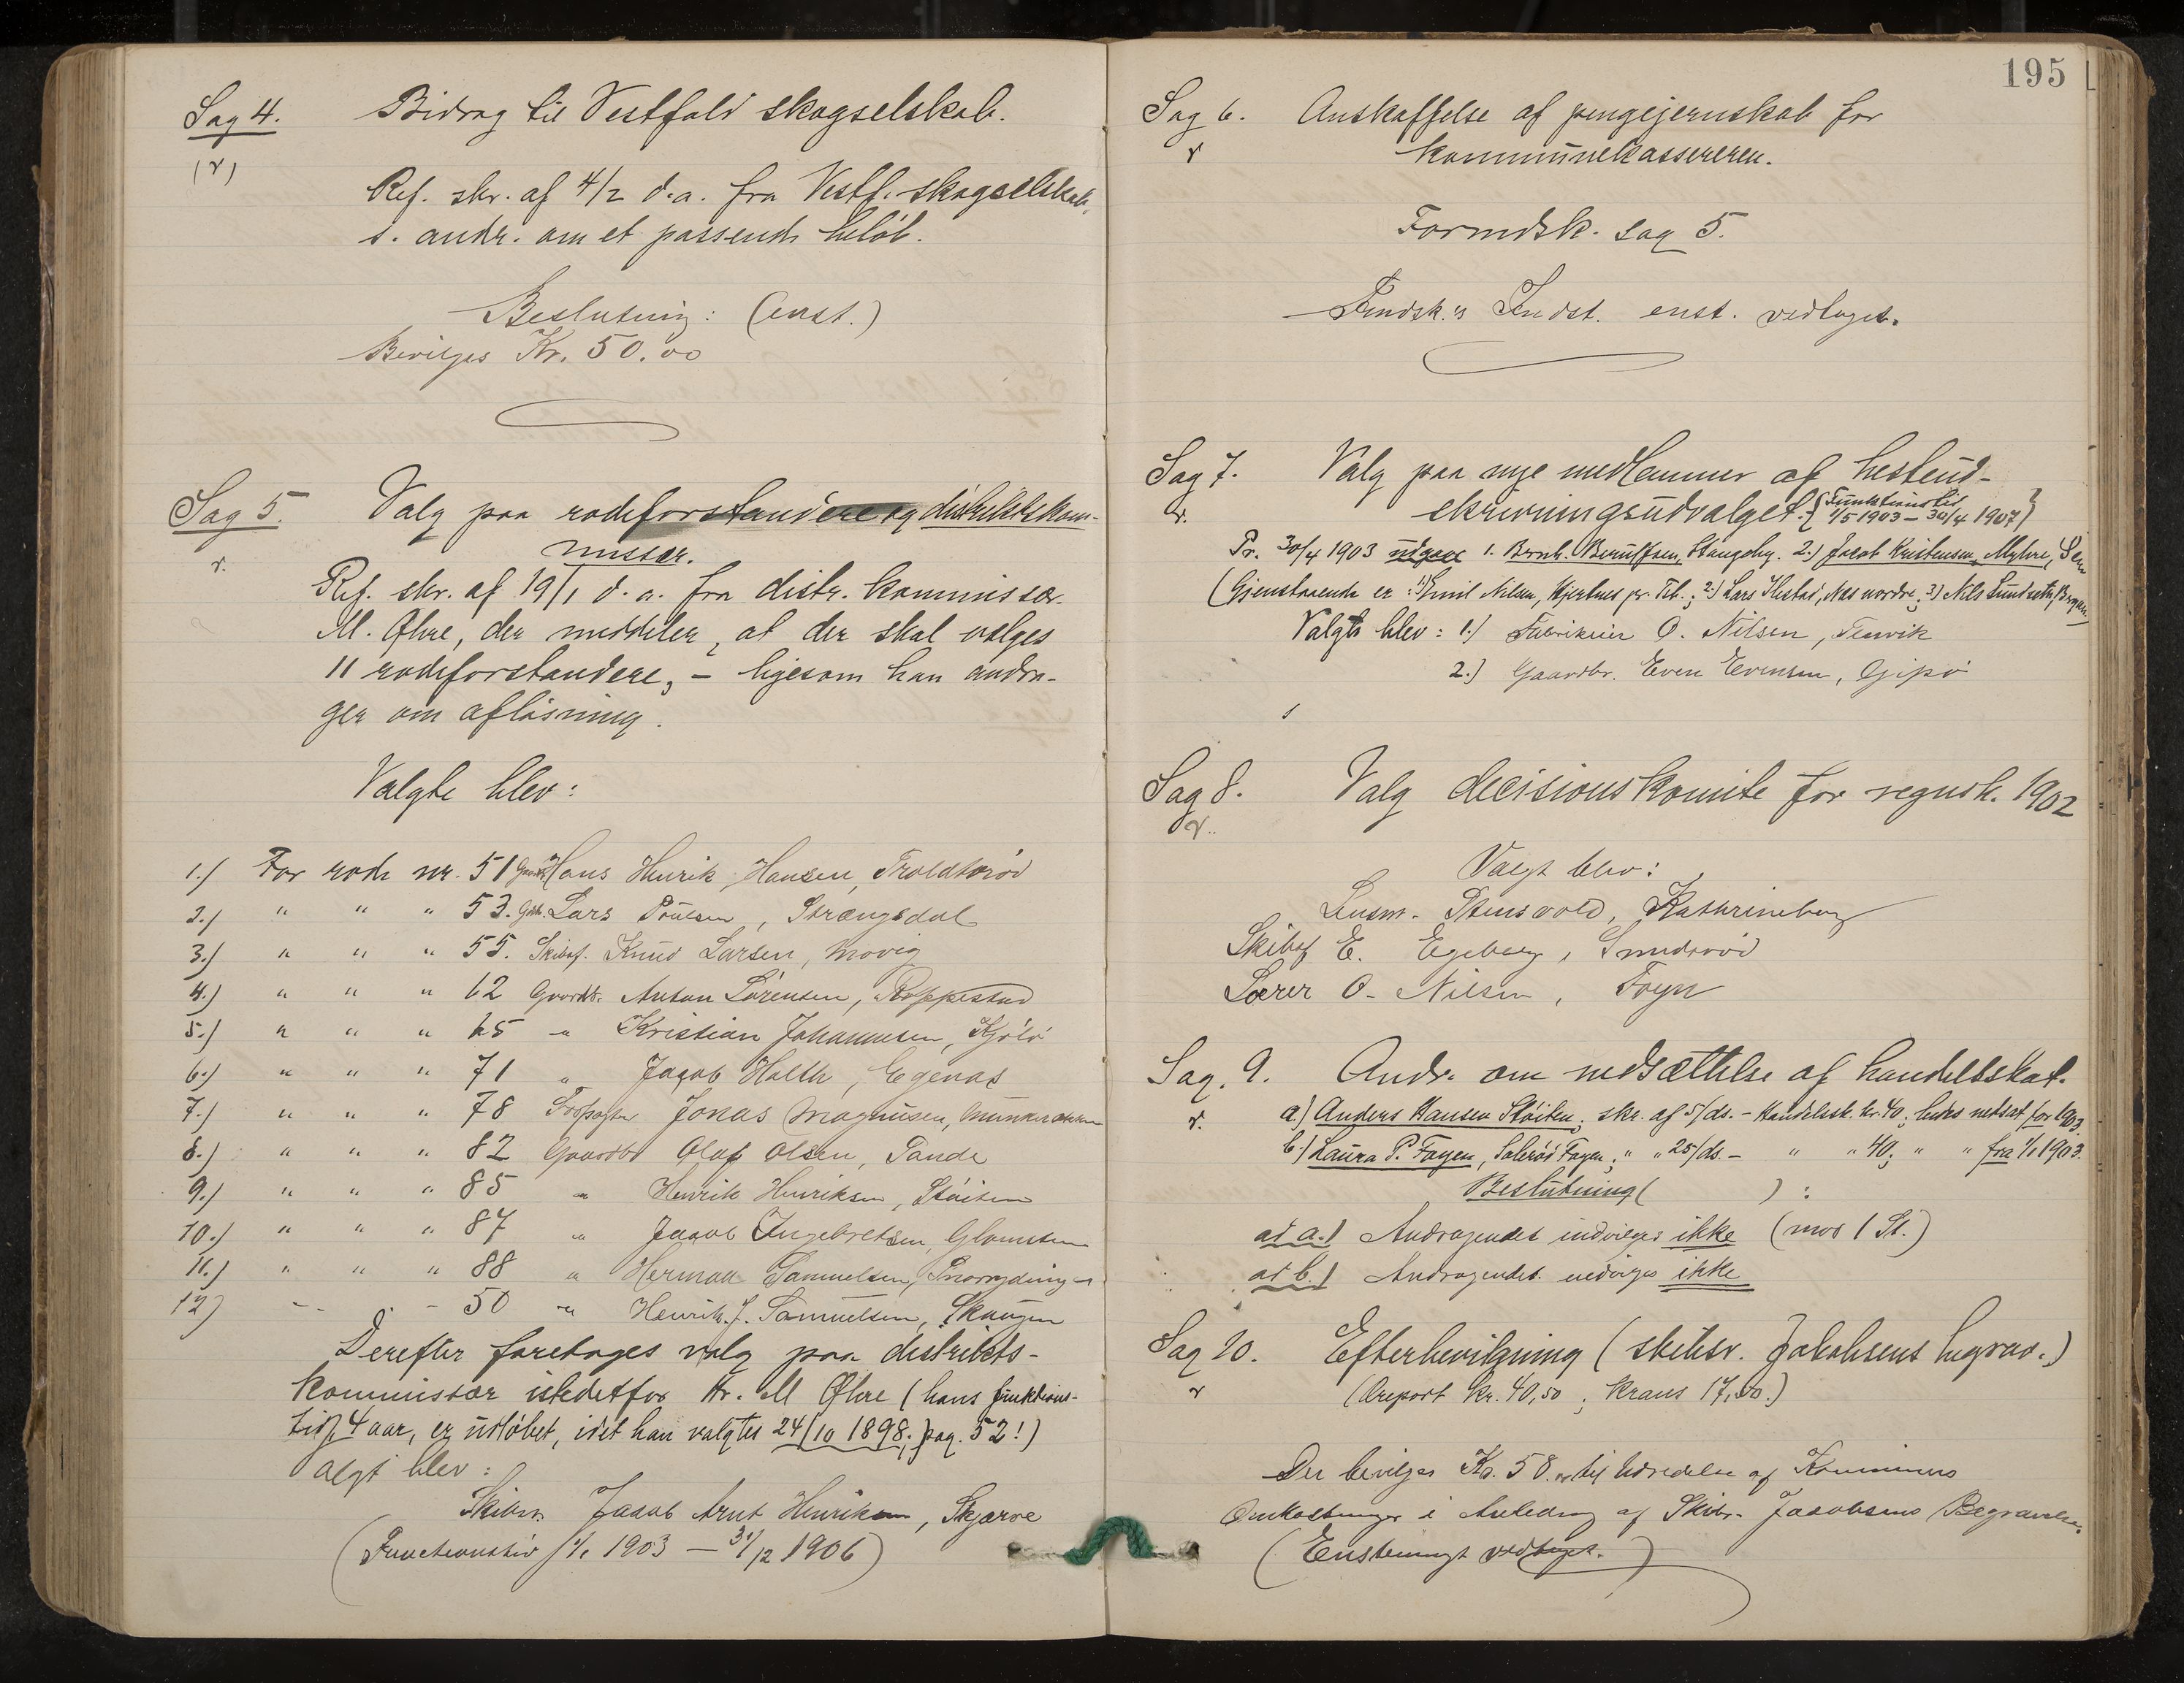 Sag 4. Bidrag til Vestfold skogselskab.
(v)
Ref. skr. af 4/2 d.a. fra Vestf. skogselskab,
s. andr. om et passende beløb.
Beslutning: (enst.)
Bevilges Kr. 50.00
Sag 5. Valg paa rodeforstandere og distriktskom-
missær.
v.
Ref. skr. af 19/1 d.a. fra distr. kommissær
M. Øhre, der meddeler, at der skal vælges
11 rodeforstandere, – ligesom han andra-
ger om afløsning.
Valgte blev:
1.) For rode nr. 51 Hans Henrik Hansen, Troldsrød
2.) " " " 53. Gbr. Lars Poulsen, Strængsdal
3.) " " " 55. Skibsf. Knud Larsen, Movig
4.) " " " 62 Gaardbr. Anton Sørensen, Roppestad
5.) " " " 65 " Kristian Johannesen, Kjølø
6.) " " " 71 " Jacob Holth, Egenæs
7.) " " " 78 Jonas Magnussen,
8.) " " " 82 Gaardbr Oluf Olsen, Sande
9.) " " " 85 " Henrik Henriksen, Støiten
10.) " " " 87 " Jacob Ingebretsen,
11.) " " " 88 " Herman Samuelsen,
12) - - - 50 " Henrik J. Samuelsen, Skaugen
Derefter foretages valg paa distrikts-
kommissær istedetfor hr. M Øhre (hans funktions-
tid, 4 aar, er udløbet, idet han valgtes 24/10 1898, pag. 52!)
Valgt blev:
Skibsr. Jacob Arnt Henriksen, Skjærve
(Functionstid 1/1 1903 – 31/12 1906)
195
Sag 6. Anskaffelse af pengejernskab for
v kommunekassereren.
Formdsk. sag 5.
Fmdsk.s Indst. enst. vedtaget.
Sag 7. Valg paa nye medlemmer af hesteud-
v. skrivningsudvalget. {Funktionstid
1/5 1903 – 30/4 1907}
Pr. 30/4 1903 udgaar 1. Bernh. Berntsen, Stangeby. 2.) Jacob Kristensen, Myhre, Sem
(Gjenstaaende er: 1) Emil Nilsen, Hjertnes pr. Tb.; 2.) Lars Ilestad, Næs nordre; 3) Nils Sundseth, Bergan)
Valgte blev: 1.) Fabrikeier O. Nilsen, Tenvik
2.) Gaardbr. Even Evensen, Gipø
Sag 8. Valg decisionskomite for regnsk. 1902
v.
Valgt blev:
Lensm. Stensvold, Kathrineborg
Skibsf E. Egeberg, Smidsrød
Lærer O. Nilsen, Føyn
Sag. 9. Andr. om nedsættelse af handelsskat.
v. a.) Anders Hansen Støiten, skr. af 5/ds. – Handelssk. kr. 40, bedes nedsat for 1903.
b.) Laura P. Føyen, Solerød Føyen, " " 25/ds. – " " 40; " " fra 1/1 1903.
Beslutning ( ) :
ad a.) Andragendet indvilges ikke (mod 1 St.)
ad b.) Andragendet indvilges ikke
Sag 10. Efterbevilgning (skibsr. Jakobsens begrav.)
v (Oreport kr. 40,50; Krans 17,50.)
Der bevilges Kr. 58.00 til Udredelse af Kommunens
Omkostninger i Anledning af Skibsr. Jacobsens Begravelse.
(Enstemmigt vedtaget.)